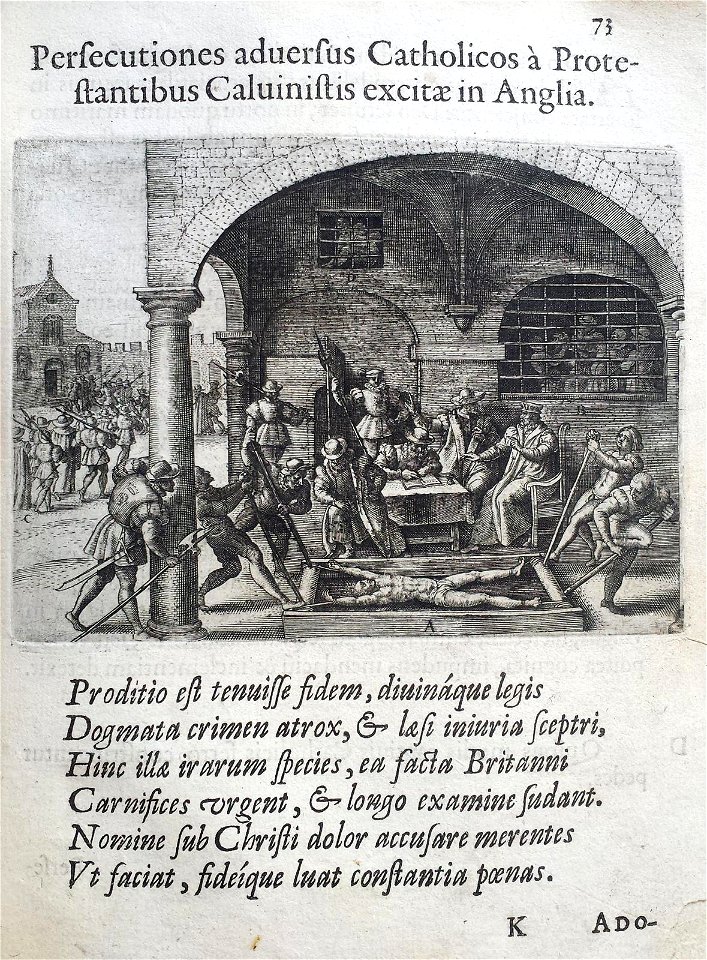 73
Perſecutiones aduerſus Catholicos à Prote-
ſtantibus Caluiniſtis excitæ in Anglia.
C
A
Proditio eſt tenuiſſe fidem, diuináque legis
Dogmata crimen atrox, & læſi iniuria ſceptri,
Hinc illæ irarum ſpecies, ea facta Britanni
Carnifices vrgent, & longo examine ſudant.
Nomine ſub Chriſti dolor accuſare merentes
Vt faciat, fideíque luat conſtantia pœnas.
K ADO-